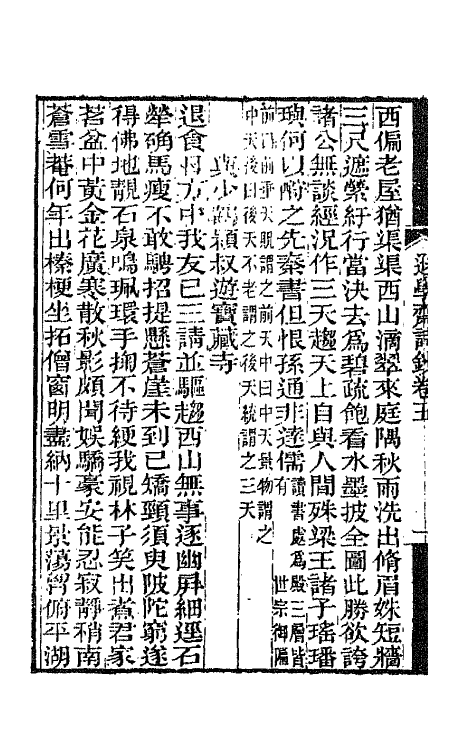 遜學齋詩鈔卷五
西偏老屋猶渠渠西山滴翠來庭隅秋雨洗出脩眉姝短牆
三尺遮縈紆行當決去爲碧疏飽看水墨披全圖此勝欲誇
諸公無談經況作三天趨天上自與人間殊梁王諸子瑤璠
璵何以酹之先秦書但恨孫通非達儒讀書處爲殿三層皆世宗御匾有
前曰前垂天貺謂之前天中曰中天景物謂之
中天後曰後天不老謂之後天統謂之三天
與少鶴穎叔遊寶藏寺
退食日方中我友已三請並驅趨西山無事逐幽屏細逕石
犖确馬瘦不敢騁招提懸蒼崖未到已矯頸須臾陂陀窮遂
得佛地靚石泉鳴珮環手掬不待綆我視林子笑出煮君家
茗盆中黃金花廣寒散秋影頗聞娛驕豪安能忍寂靜稍南
蒼雪菴何年出榛梗坐拓僧窗明盡納十里景蕩胷俯平湖